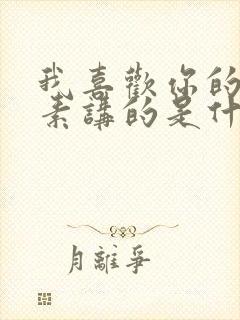 我喜歡你的
素講的是什
月離爭